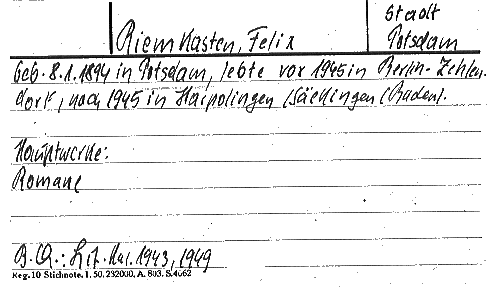 Stadt
Riemkasten, Felix Potsdam
Geb. 8.1.1894 in Potsdam, lebte vor 1945 in Berlin-Zehlen-
dorf, nach 1945 in Harpolingen/Säckingen (Baden).
Hauptwerke:
Romane
B.Qu.: Lit. Kal. 1943, 1949
Reg. 10 Stichnote. I. 50. 232000, A. 803. S. 4062